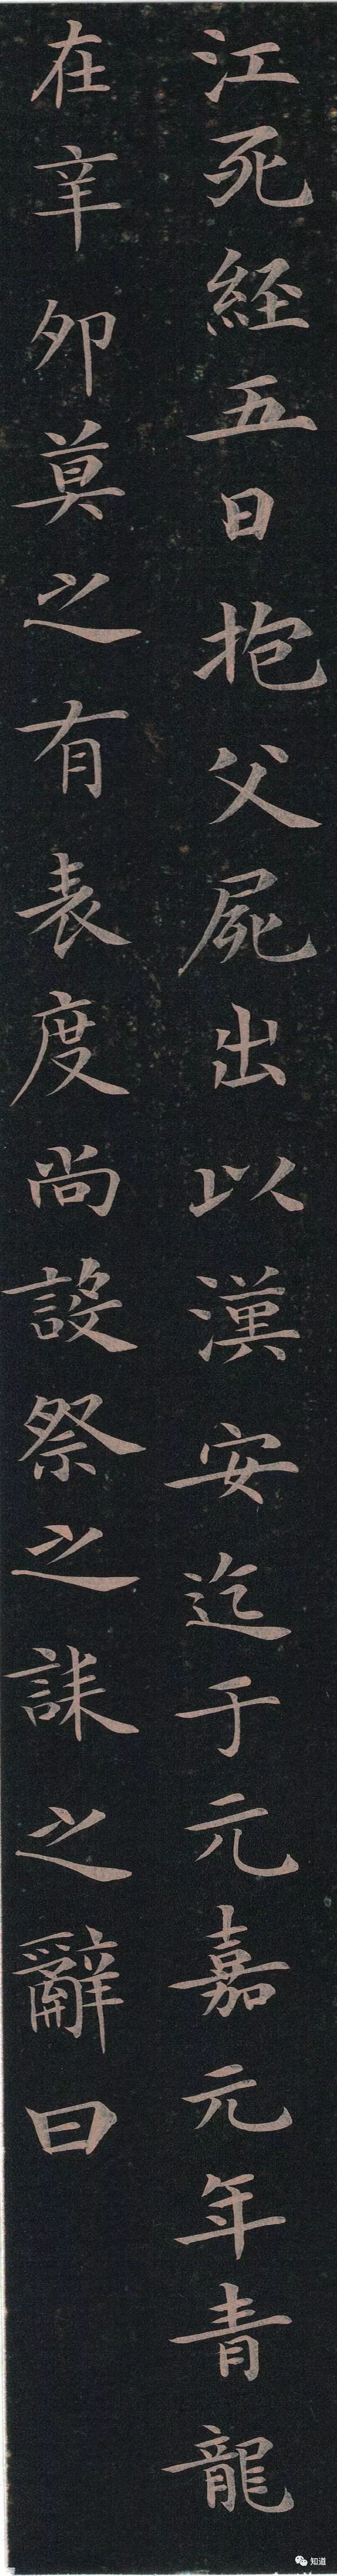 江死經五日抱父屍出以漢安迄于元嘉元年青龍
在辛卯莫之有表度尚設祭之誄之辭曰
知道